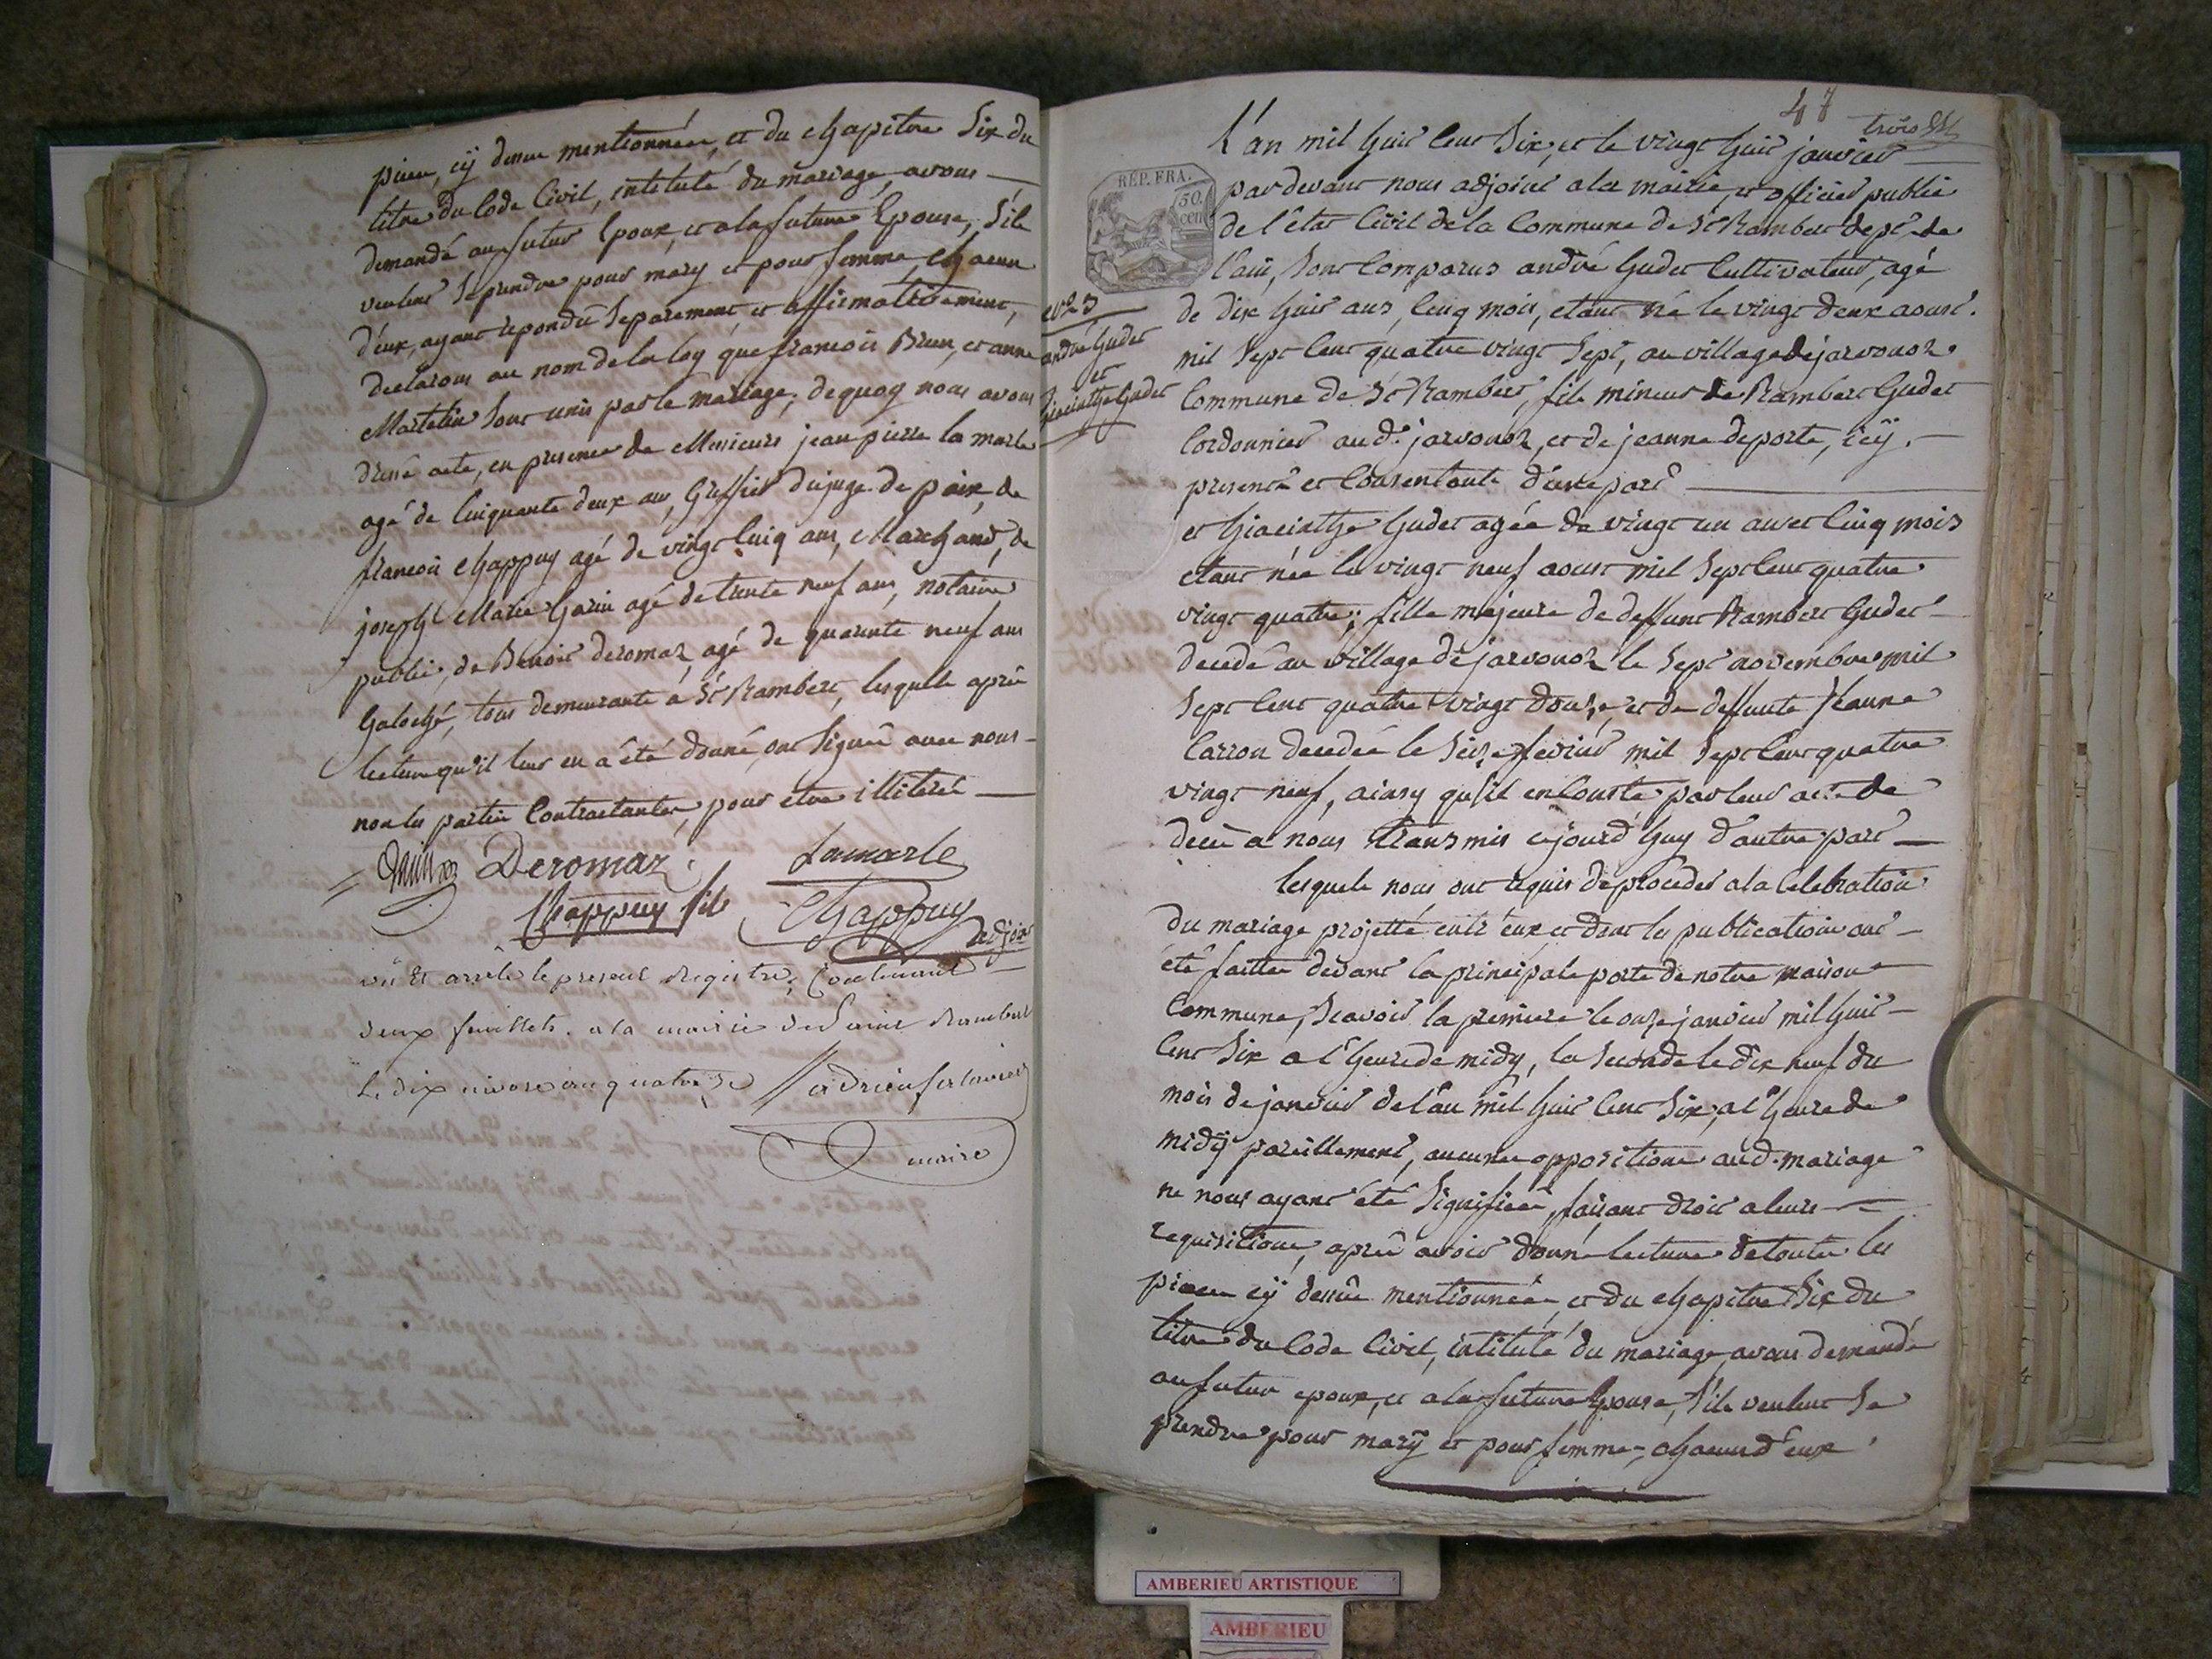 pieces, cÿ dessus mentionnées, et du chapitre Six du
titre du Code Civil, intitulé du mariage, avons
demandé au futur Epoux, et a la future Epouse, S'ils
veulent Se prendre pour mary et pour femme, chacun
d'eux, ayant repondu Separement et affirmativement,
declarons au nom de la loy que francois Brun, et anne
Martelin Sont unis par le mariage; de quoy nous avons
dressé acte, en presence de Messieurs jean pierre la marle
agé de Cinquante deux ans, Greffier du juge de paix, de
francois Chappuy agé de vingt Cinq ans, Marchand, de
joseph Marie Garin agé de trente neuf ans, notaire
public, de Benoit deromaz, agé de quarante neuf ans
Galoché, tous demeurants à St Rambert, lesquels après
lecture qu'il leur en a été donné, ont Signés avec nous
non les parties Contractantes, pour etre illiterés
Deromaz Lamarle
Chappuy fils Chappuy adjoint
vu Et arrêté le present Registre, Contenant
deux feuillets. a la mairie de Saint Rambert
Le dix nivose an quatorze
maire
47
trois
L'an mil huit Cent Six, et le vingt huit janvier
REP. FRA.
50. cen
par devant nous adjoint a la mairie, et officier public
de l'état Civil de la Commune de St Rambert dept. de
l'ain, Sont Comparus andré Gudet Cultivateur, agé
de dix huit ans, Cinq mois, etant né le vingt deux aoust.
mil Sept Cent quatre vingt Sept, au village de jarvonoz
Commune de St Rambert, fils mineur de Rambert Gudet
Cordonnier aud. jarvonoz, et de jeanne deporte, icÿ.
presents et Consentants d'une part
n° 23
andré Gudet
et
hiacinthe Gudet
et hiacinthe Gudet agée de vingt un ans et Cinq mois
etant née le vingt neuf aoust mil Sept Cent quatre
vingt quatre; fille majeure de deffunt Rambert Gudet
decedé au village de jarvonoz le Sept novembre mil
Sept Cent quatre vingt douze, et de deffunte Jeanne
Carron decedée le Seize fevrier mil Sept Cent quatre
vingt neuf, ainsy qu'il en Conste par leurs actes de
decès a nous transmis cejourd'huy d'autre part
lesquels nous ont requis de proceder a la Celebration
du mariage projetté entr'eux et dont les publications ont
été faittes devant la principale porte de notre maison
Commune, Scavoir la premiere le onze janvier mil huit
Cent Six a l'heure de midy, la Seconde le dix neuf du
mois de janvier de l'an mil huit Cent Six, a l'heure de
midÿ pareillement, aucunes oppositions aud. mariage
ne nous ayant été Signifiées, faisant droit a leurs
requisitions, après avoir donné lecture de toutes les
pieces cÿ dessus mentionnées, et du chapitre Six du
titre du Code Civil, intitulé du mariage, avons demandé
au futur epoux, et a la future Epouse, S'ils veulent Se
prendre pour marÿ et pour femme, chacun d'eux
AMBERIEU ARTISTIQUE
AMBERIEU